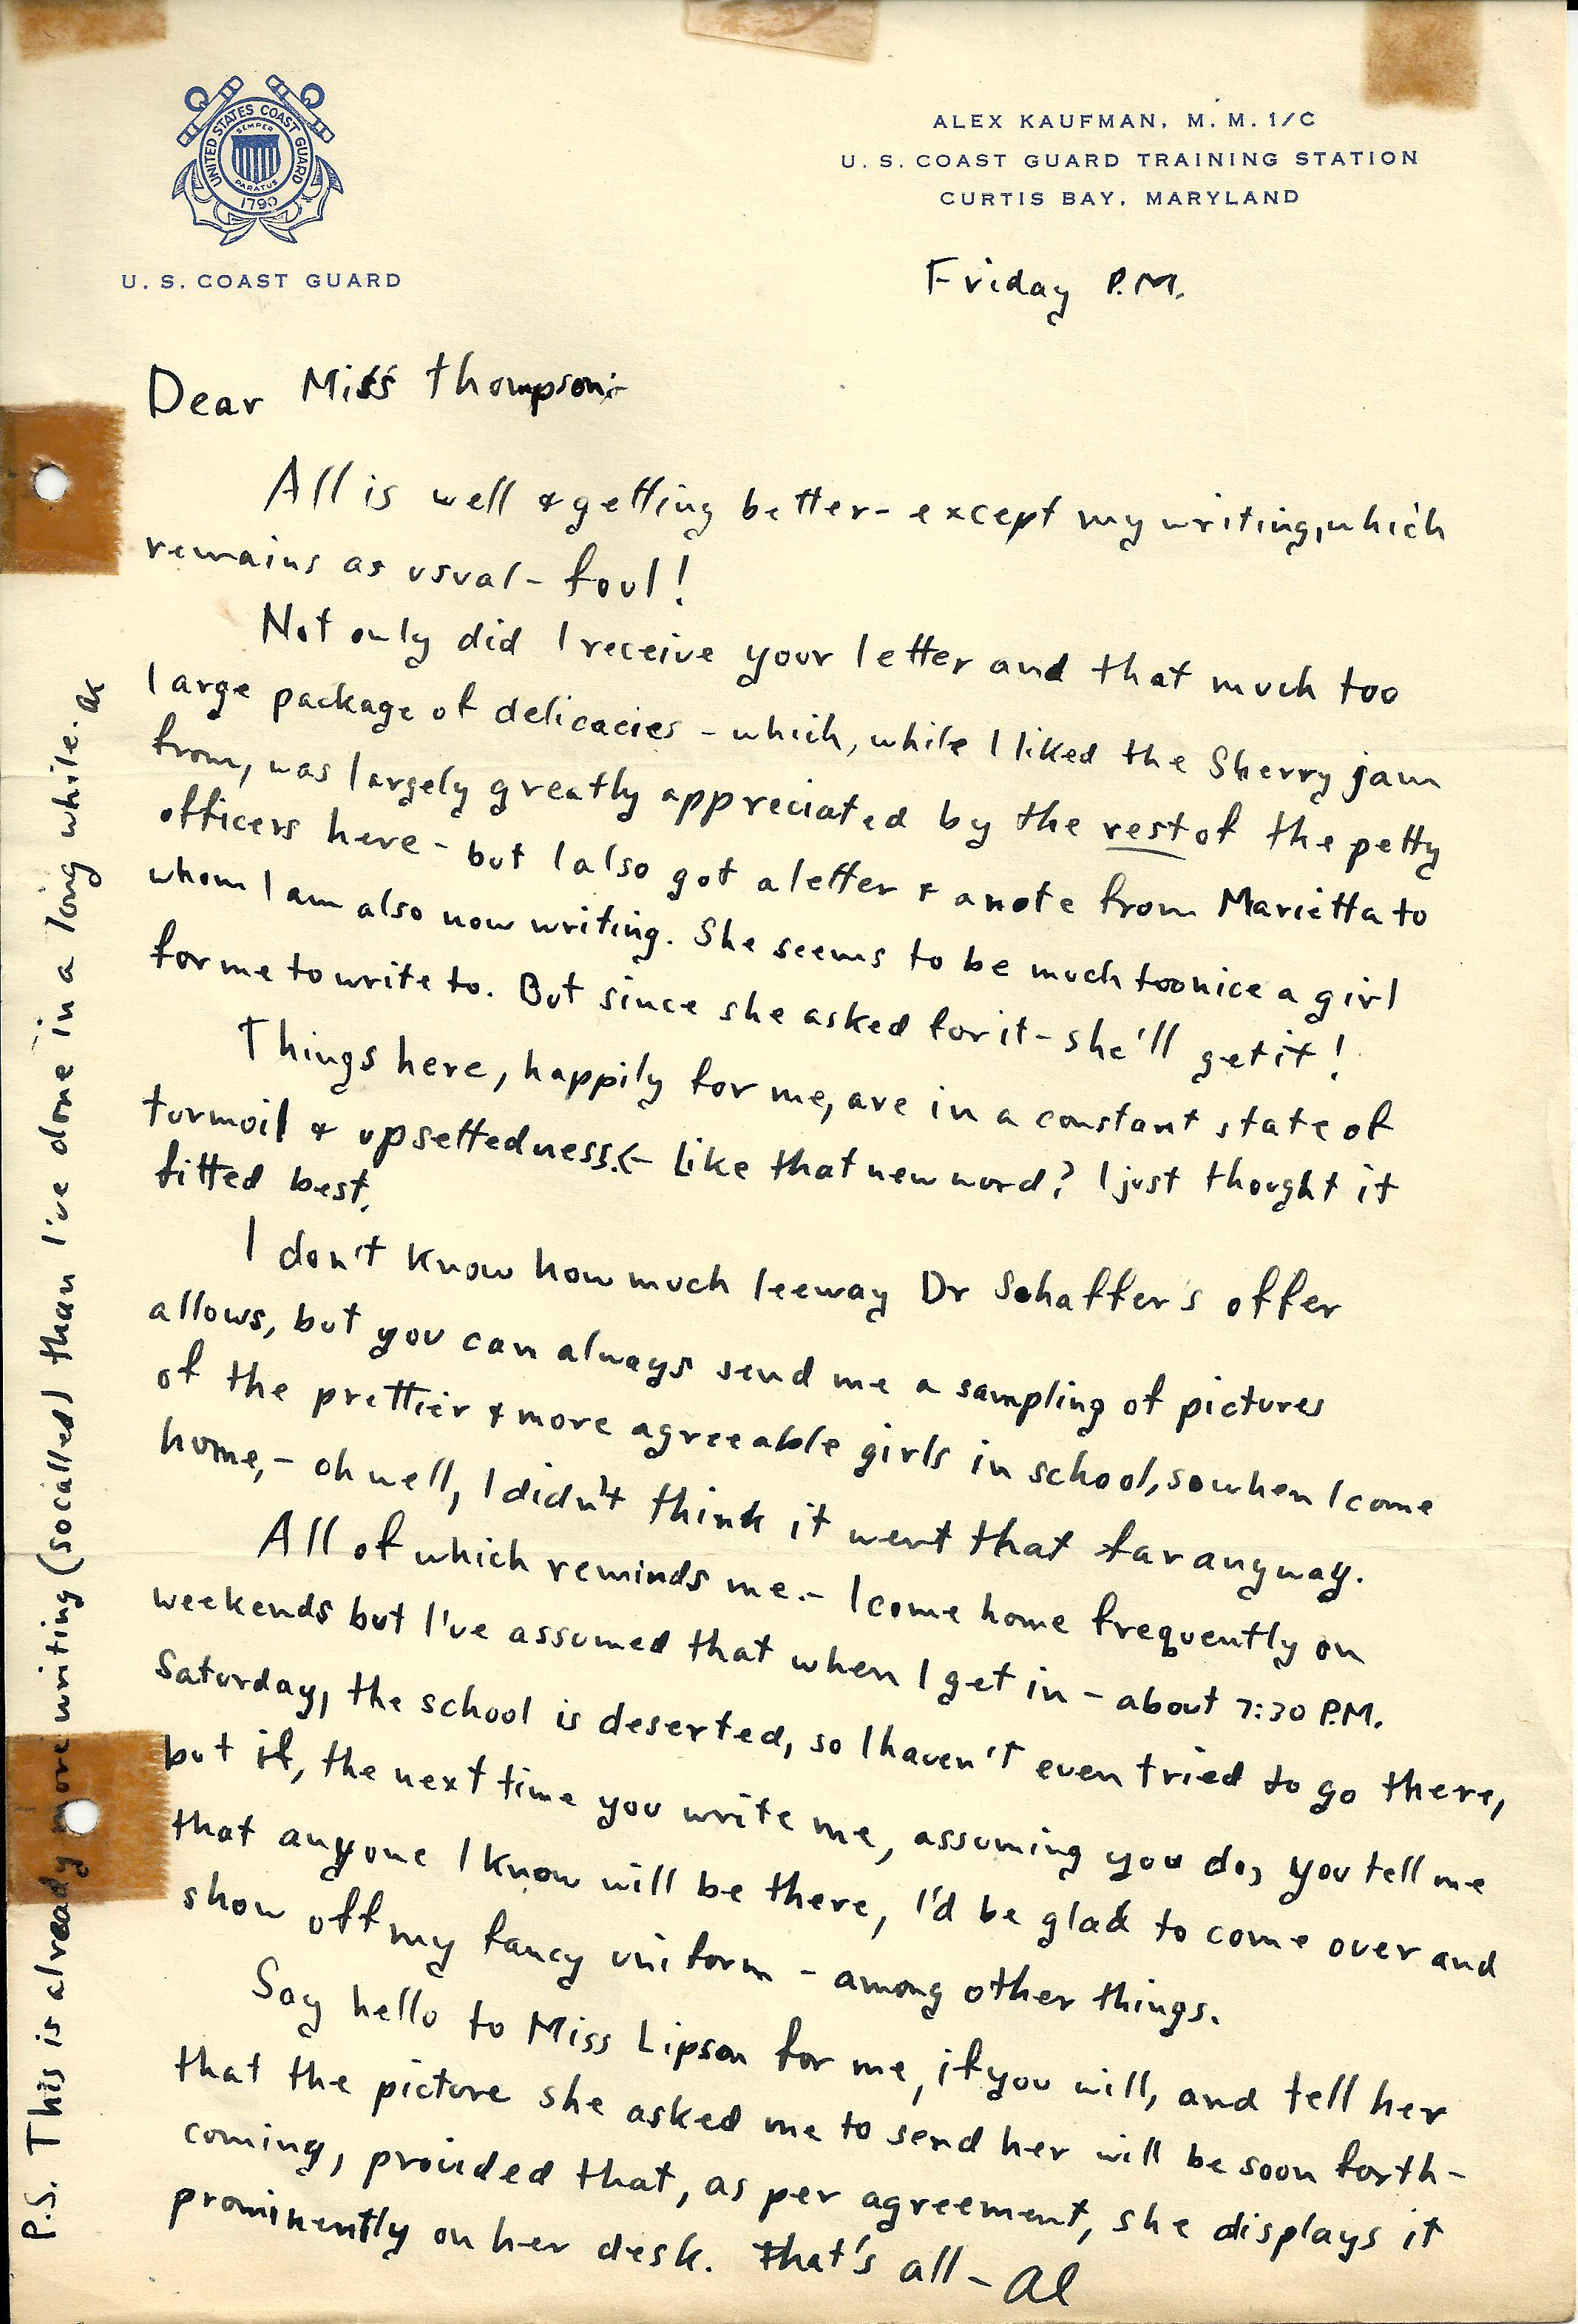 UNITED STATES COAST GUARD
SEMPER
PARATUS
1790
U. S. COAST GUARD
ALEX KAUFMAN, M. M. 1/C
U. S. COAST GUARD TRAINING STATION
CURTIS BAY, MARYLAND
Friday P.M.
Dear Miss Thompson:-
All is well & getting better - except my writing, which
remains as usual - foul!
Not only did I receive your letter and that much too
large package of delicacies - which, while I liked the Sherry jam
from, was largely greatly appreciated by the rest of the petty
officers here - but I also got a letter & a note from Marietta to
whom I am also now writing. She seems to be much too nice a girl
for me to write to. But since she asked for it - she'll get it!
Things here, happily for me, are in a constant state of
turmoil & upsettedness. <- Like that new word? I just thought it
fitted best.
I don't know how much leeway Dr Schaffer's offer
allows, but you can always send me a sampling of pictures
of the prettier & more agreeable girls in school, so when I come
home, - oh well, I didn't think it went that far anyway.
All of which reminds me. - I come home frequently on
weekends but I've assumed that when I get in - about 7:30 P.M.
Saturday, the school is deserted, so I haven't even tried to go there,
but if, the next time you write me, assuming you do, you tell me
that anyone I know will be there, I'd be glad to come over and
show off my fancy uniform - among other things.
Say hello to Miss Lipson for me, if you will, and tell her
that the picture she asked me to send her will be soon forth-
coming, provided that, as per agreement, she displays it
prominently on her desk. That's all - Al
P.S. This is already more writing (socalled) than I've done in a long while. AK